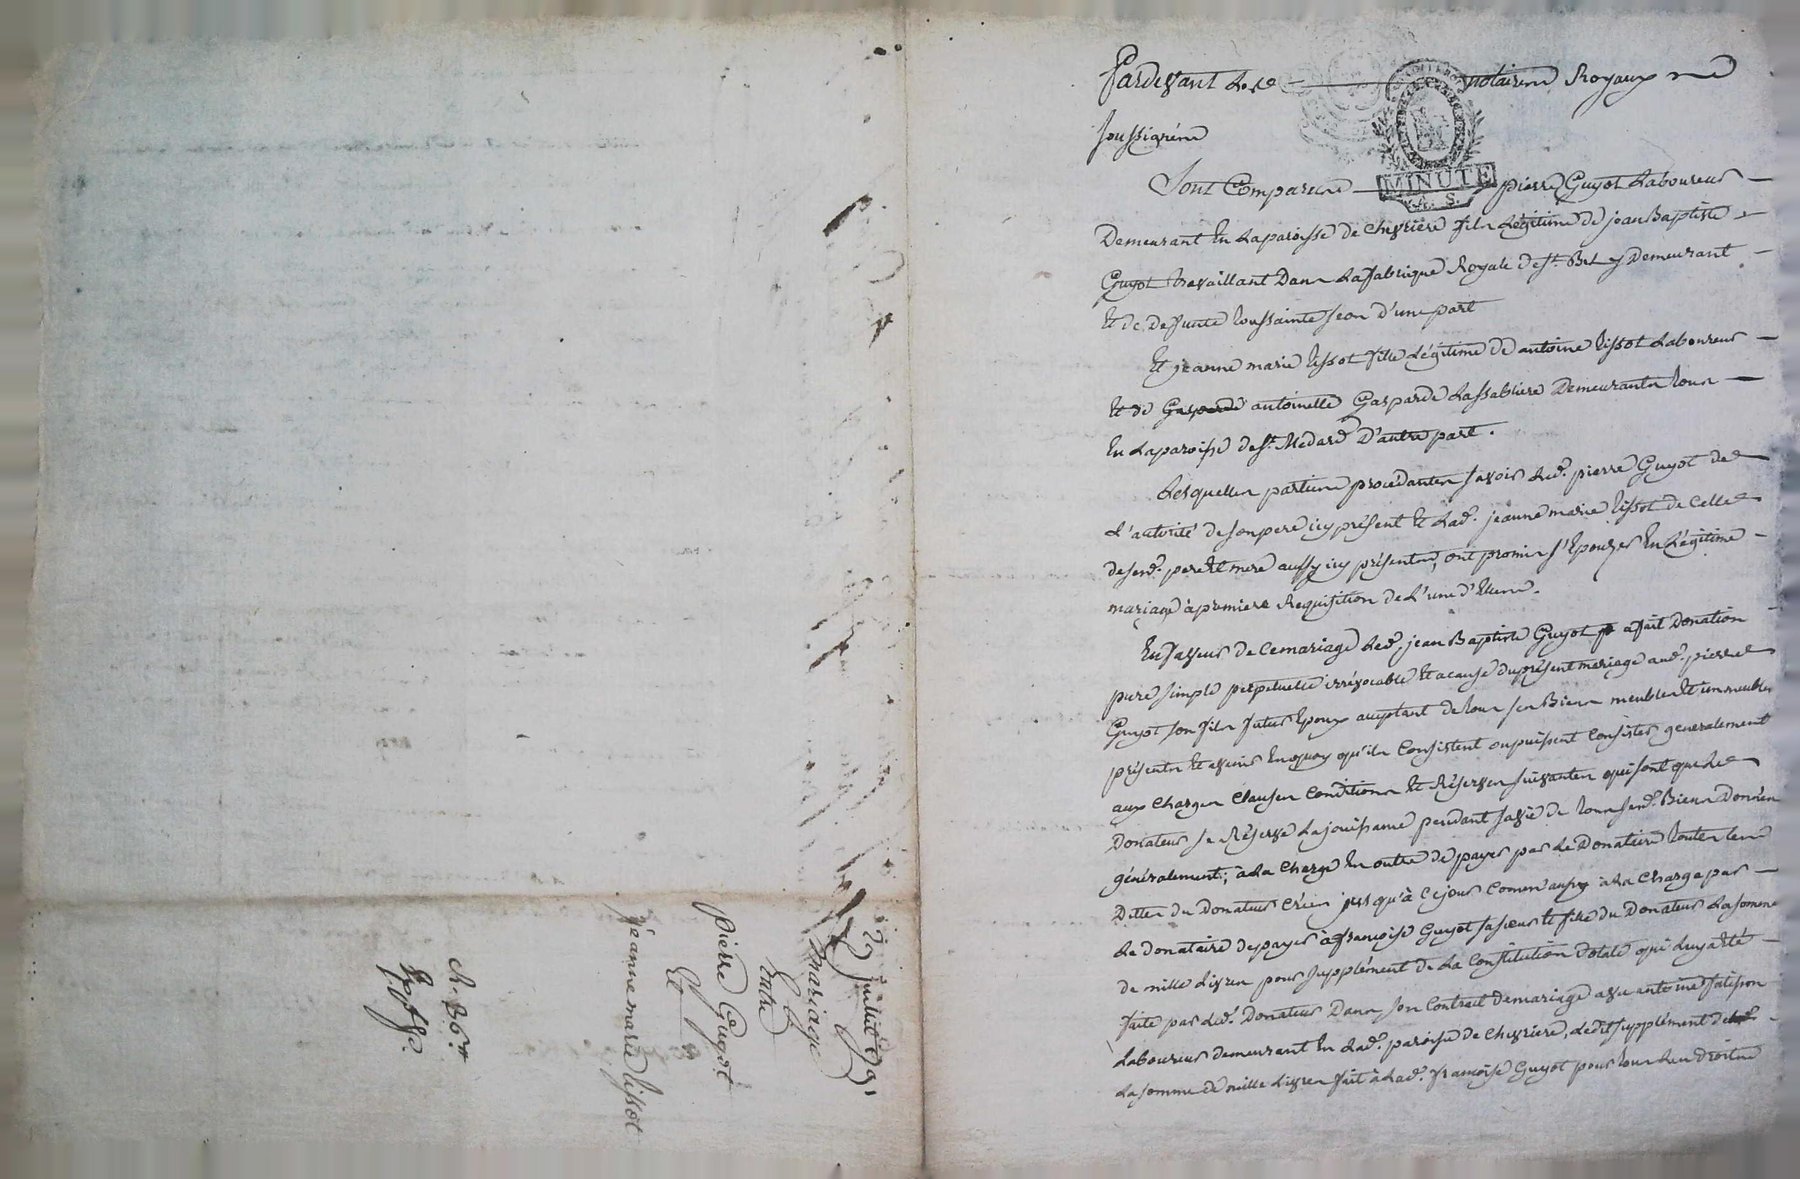 Pardevant Les notaires Royaux
soussignés
MINUTE
A. S.
Sont Comparus pierre Guyot Laboureur
Demeurant En La paroisse de chevriere fils Légitime de jean Baptiste
Guyot travaillant Dans La fabrique Royale de st. Bel y Demeurant
Et de deffunte toussainte jean d'une part
Et jeanne marie tissot fille Légitime de antoine tissot Laboureur
Et de Gasparde antoinette Gasparde Lassabliere Demeurants tous
En La paroisse de st. Médard D'autre part.
Lesquelles parties procédantes savoir Led. pierre Guyot de
L'autorité de son pere icy présent Et Lad. jeanne marie tissot de celle
de sesd. pere Et mere aussy icy présents, ont promis s'Epouser En Légitime
mariage à premiere Requisition de L'une d'Elles.
En faveur de ce mariage Led. jean Baptiste Guyot a fait Donation
pure simple perpetuelle irrévocable Et a cause du présent mariage aud. pierre
Guyot son fils futur Epoux acceptant de tous ses Biens meubles Et immeubles
présents Et avenir En quoy qu'ils Consistent ou puissent Consister generalement
aux charges Clauses Conditions Et Réserves suivantes qui sont que Le
Donateur se Réserve La jouissance pendant sa vie de tous sesd. Biens Donnés
généralement; à La charge En outre de payer par Le Donataire toutes Les
Dettes du Donateur jusqu'à ce jour Comm'aussy à La charge par
Le donataire de payer à françoise Guyot sa sœur Et fille du Donateur La somme
de mille Livres pour supplément de La Constitution dotale qui Luy a été
faite par Led. Donateur Dans son Contrat de mariage avec antoine
Laboureur demeurant En Lad. paroisse de chevriere, Ledit supplément de
La somme de mille Livres fait à Lad. françoise Guyot pour tous Les droits
juillet 1791
mariage
Entre
pierre Guyot
Et
jeanne marie tissot